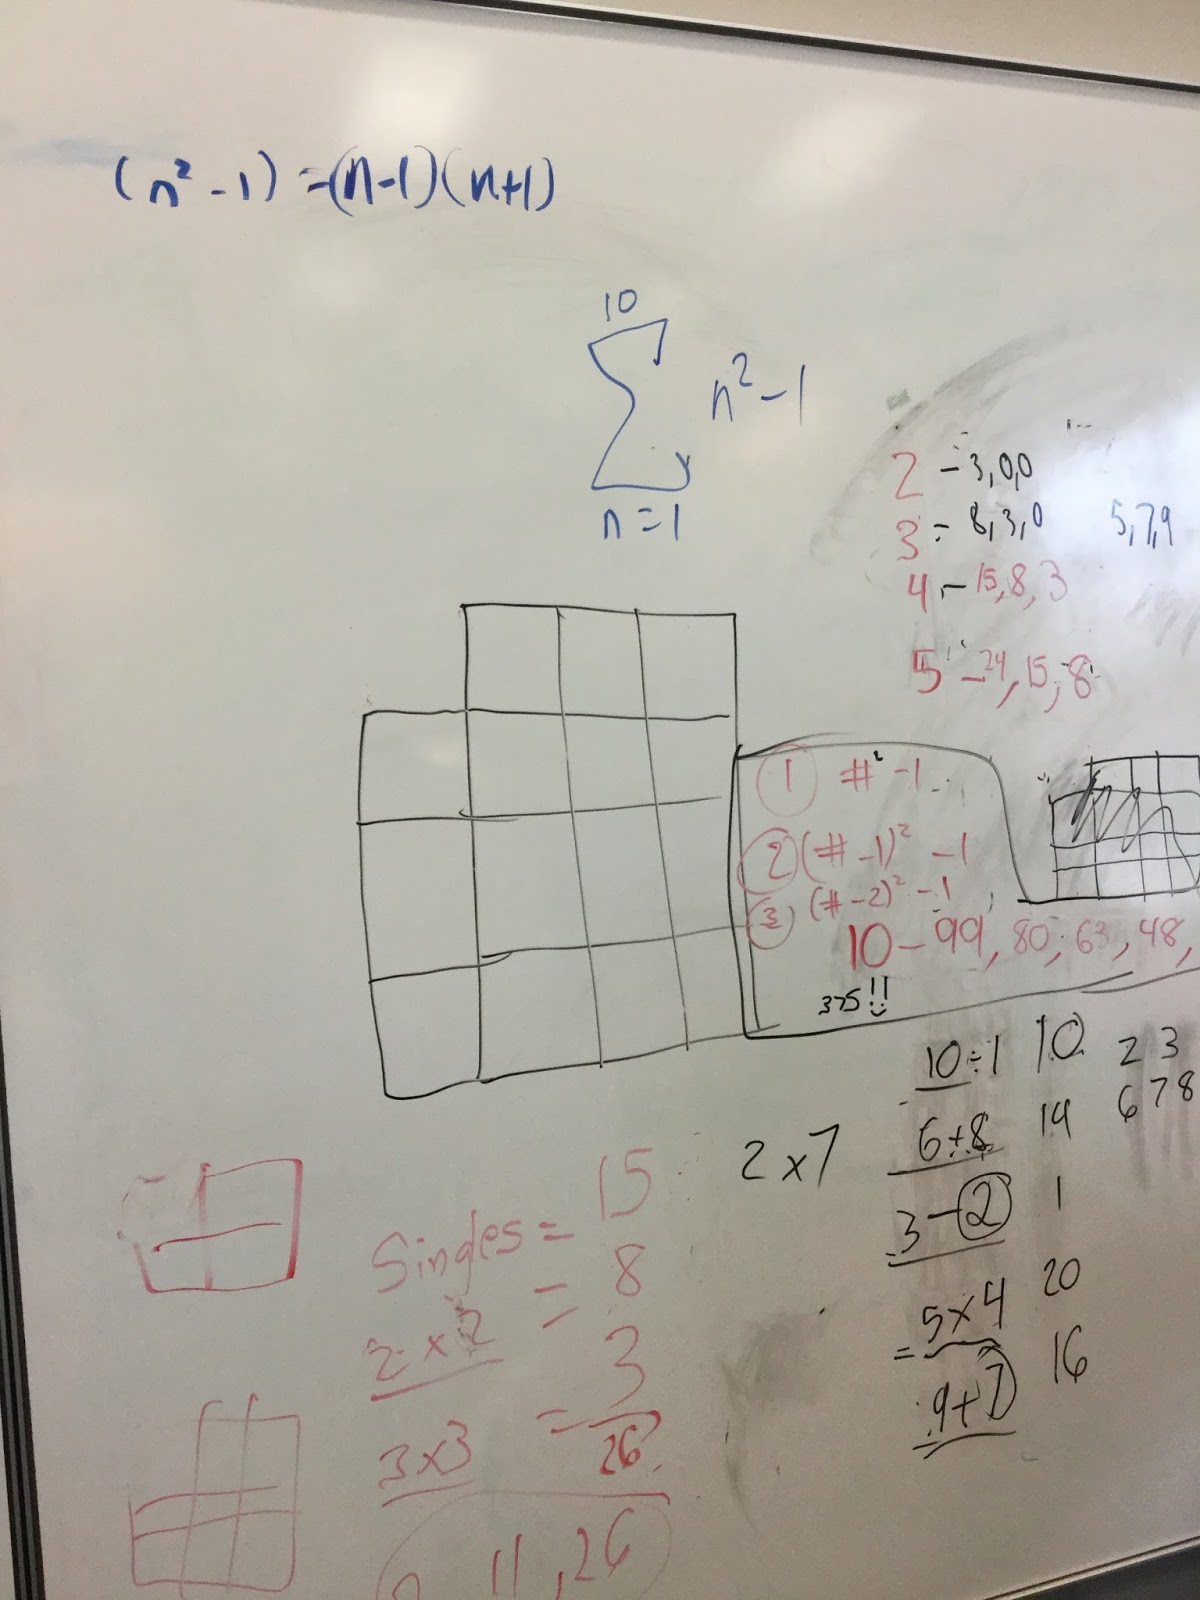 (n² - 1) = (n-1)(n+1)
10
∑ n² - 1
n = 1
2 - 3, 0, 0
3 - 8, 3, 0
5, 7, 9
4 - 15, 8, 3
5 - 24, 15, 8
① #² - 1
② (# - 1)² - 1
③ (# - 2)² - 1
10 - 99, 80, 63, 48,
375!!
10 ÷ 1 10 2 3
6 + 8 14 6 7 8
2 x 7
3 - ② 1
5 x 4 20
= 9 + 7 16
Singles = 15
2 x 2 = 8
3 x 3 = 3
26
11, 26